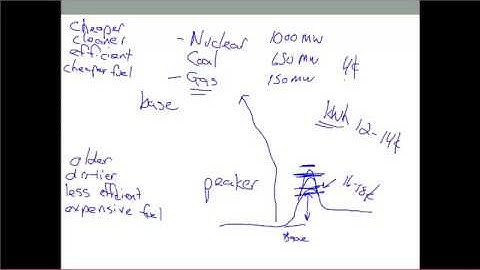 cheaper
cleaner
efficient
cheaper fuel
- Nuclear 1000 MW
Coal 650 MW 4¢
- Gas 150 MW
base
kWh 12-14¢
older
dirtier
less efficient
expensive fuel
peaker
16-18¢